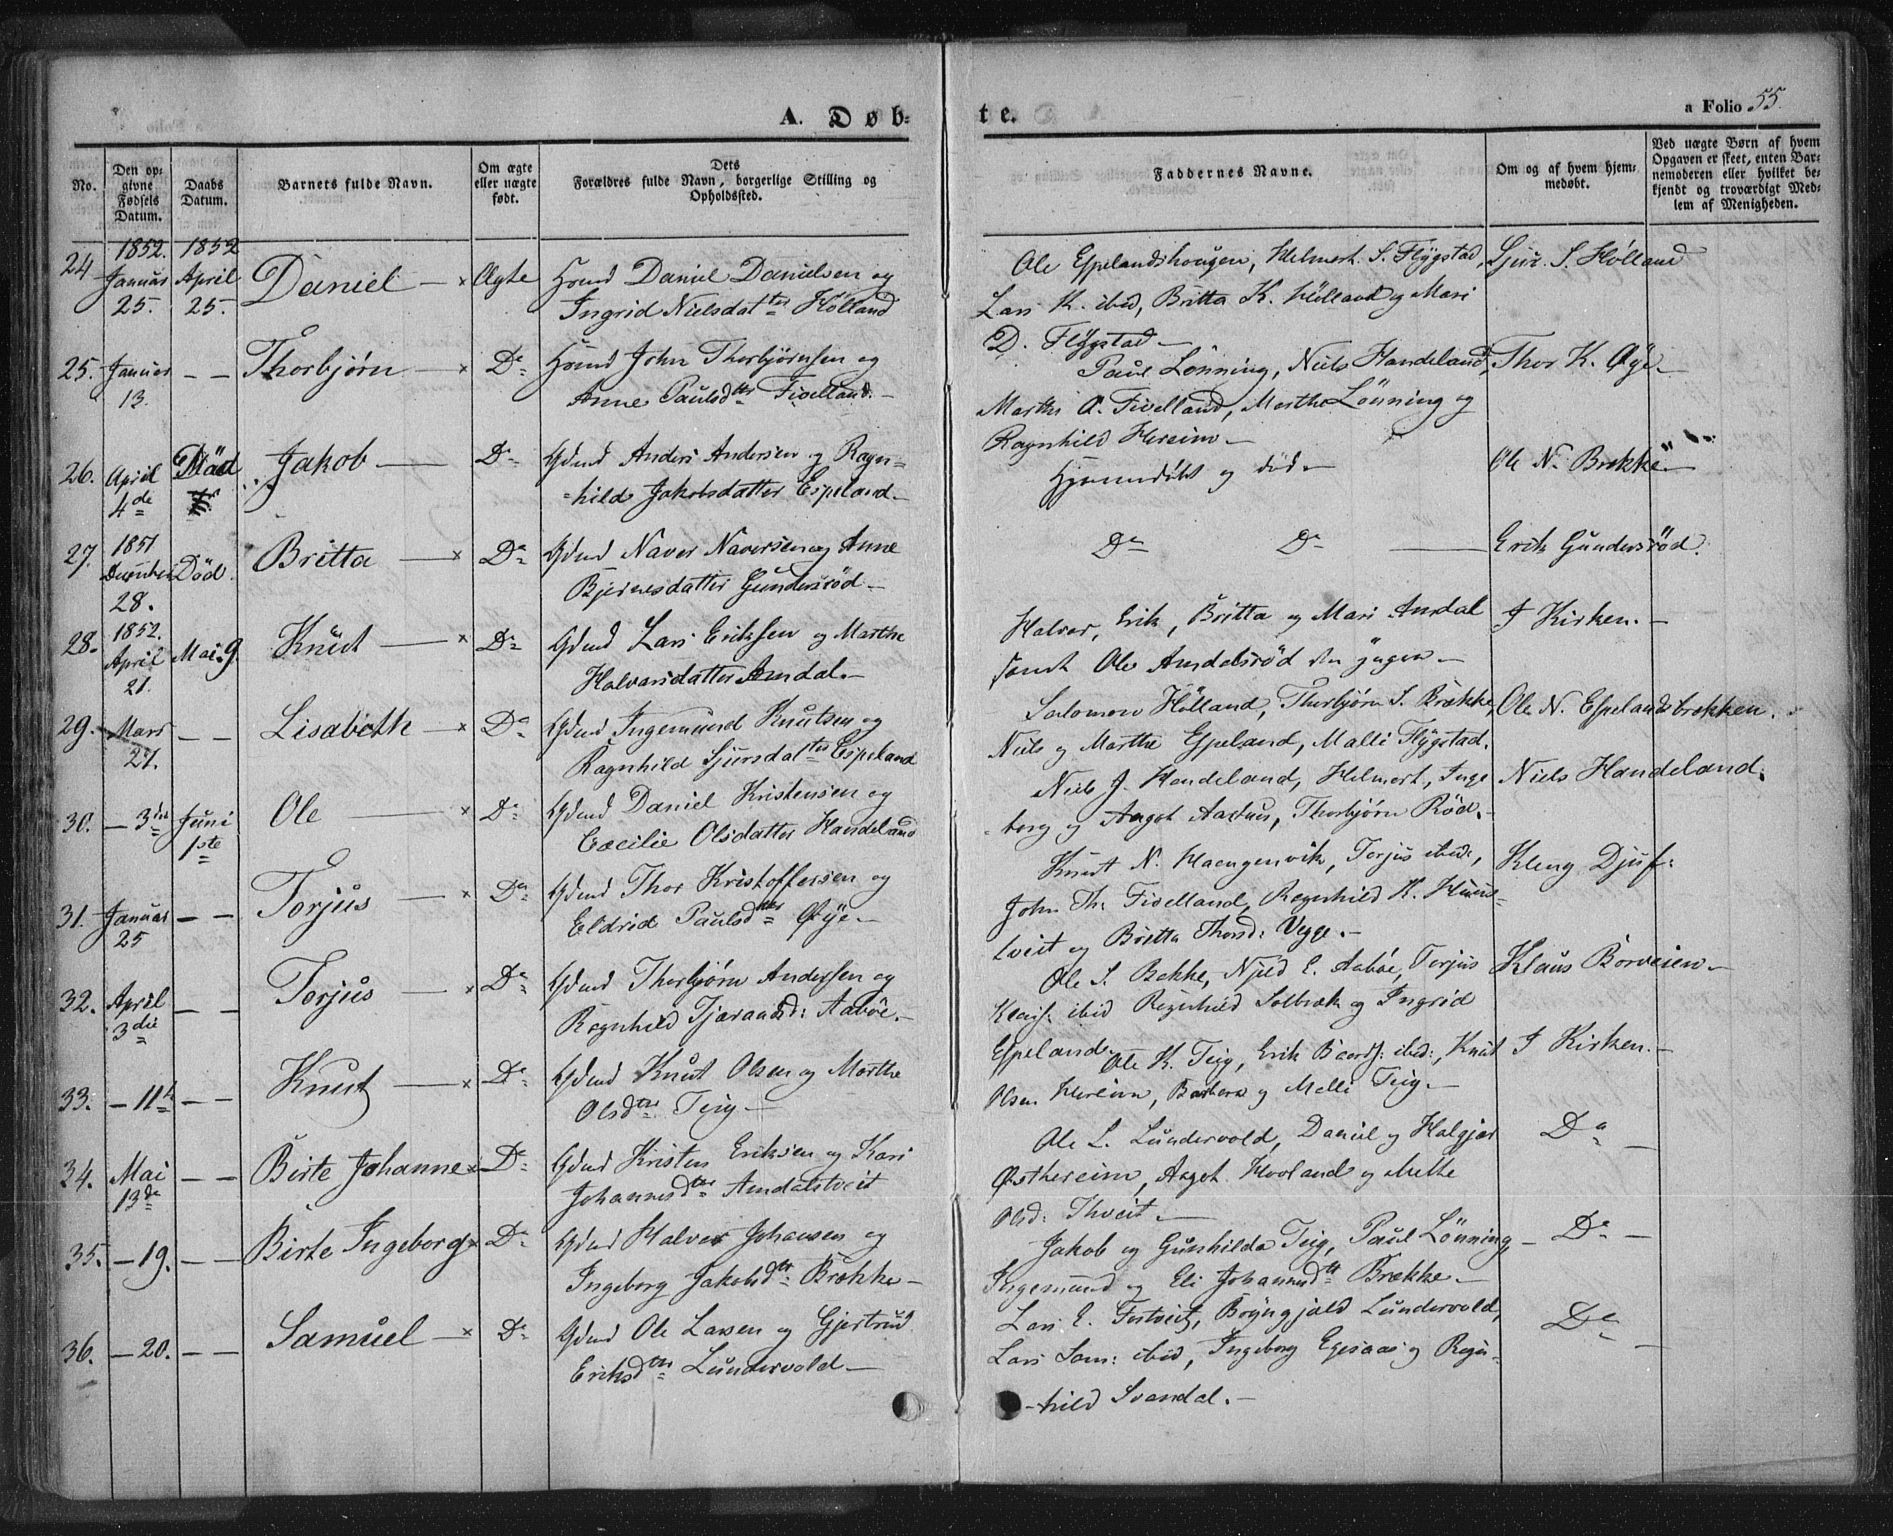 A. Døb-
te.
a Folio 55.
No.
Den op-
givne
Fødsels
Datum.
Daabs
Datum.
Barnets fulde Navn.
Om ægte
eller uægte
født.
Dets
Forældres fulde Navn, borgerlige Stilling og
Opholdssted.
Faddernes Navne.
Om og af hvem hjem-
medøbt.
Ved uægte Børn af hvem
Opgaven er skeet, enten Bar-
nemoderen eller hvilket be-
kjendt og troværdigt Med-
lem af Menigheden.
24 1852. Januar 25. 1852 April 25. Daniel — × Ægte Hmd Daniel Danielsen og
Ingrid Nielsdatter Hølland
Ole Espelandshougen, Helmert. S. Flygstad, Sjur. S. Hølland
Lars K. ibid, Britta K. Hølland og Mari
D. Flygstad —
25. Januar 13. — — Thorbjørn — × Do Hmd John Thorbjørnsen og
Anne Paulsdtr Fivelland. —
Paul Lønning, Niels Handeland, Thor K. Øye —
Marthe A. Fivelland, Marthe Lønning og
Ragnhild Hereim —
26. April 4de Død Jakob — Do Gdmd Anders Andersen og Ragn-
-hild Jakobsdatter Espeland —
Hjemmdøbt og død — Ole N. Brekke —
27. 1851 December 28. Død. Britta — × Do Gdmd Naver Naversen og Anne
Bjernesdatter Gundersrød —
Do Do — Erik Gundersrød.
28. 1852. April 21. Mai 9 Knut — × Do Gdmd Lars Eriksen og Marthe
Halvarsdatter Amdal. —
Halvor, Erik, Britta og Mari Amdal I Kirken. —
samt Ole Amdalsrød den yngre —
29. Mars 27. — — Lisabeth — × Do Gdmd Ingemund Knutsen og
Ragnhild Sjursdatter Espeland
Salomon Hølland, Thorbjørn S. Brække, Ole N. Espelandsbrekken.
Niels og Marthe Espeland, Malli Flygstad.
30. — 3die Juni 1ste Ole — × Do Gdmd Daniel Kristensen og
Cæcilie Olsdatter Handeland
Niels J. Handeland, Helmert, Inge- Niels Handeland.
-borg og Aagot Aartun, Thorbjørn Rød. —
31. Januar 25 — — Torjus — × Do Gdmd Thor Kristoffersen og
Eldrid Paulsdtr Øye —
Knut N. Haengenvik, Torjus ibid:, Kleng Djuf:
John Th: Fivelland, Regnhild K. Humel-
tveit og Britta Thorsd: Vegge. —
32. April 3die — — Torjus — × Do Gdmd Thorbjørn Andersen og
Regnhild Tjæraandsd: Aabøe. —
Ole S. Bekke, Njeld E. Aabøe, Torjus Klaus Børveien —
ibid Regnhild Solbræk og Ingrid
Espeland
33. — 11te — — Knut — × Do Gdmd Knut Olsen og Marthe
Olsdtr Teig —
Ole K. Teig, Erik Baards: ibid:, Knut I Kirken. —
Olsen Hereim, Barbera og Malli Teig. —
34. Mai 13de — — Birte Johanne × Do Gdmd Kristen Eriksen og Kari
Johannesdtr Amdalstveit
Ole L. Lundervold, Daniel og Halgjær Do —
Østhereim, Aagot Hovland og Mette
Olsd: Thveit —
35. — 19. — — Birte Ingeborg × Do Gdmd Halvor Johansen og
Ingeborg Jakobsdtr Brække —
Jakob og Gunhilda Teig, Paul Lønning, — Do —
Ingemund og Eli Johannesdtr Brække. —
36. — 20. — — Samuel — × Do Gdmd Ole Larsen og Gjertrud
Eriksdtr Lundervold —
Lars E. Tostveit, Bryngjald Lundervold, Do —
Lars Sam: ibid, Ingeborg Egesaas og Regn-
-hild Svandal. —